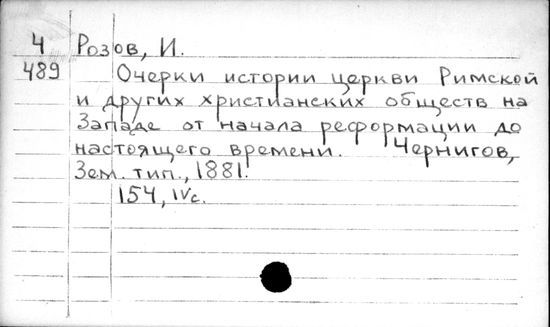 4 Розов, И.
489 Очерки истории церкви Римской
и других христианских обществ на
Западе от начала реформации до
настоящего времени. Чернигов,
Зем. тип., 1881.
154, IVс.